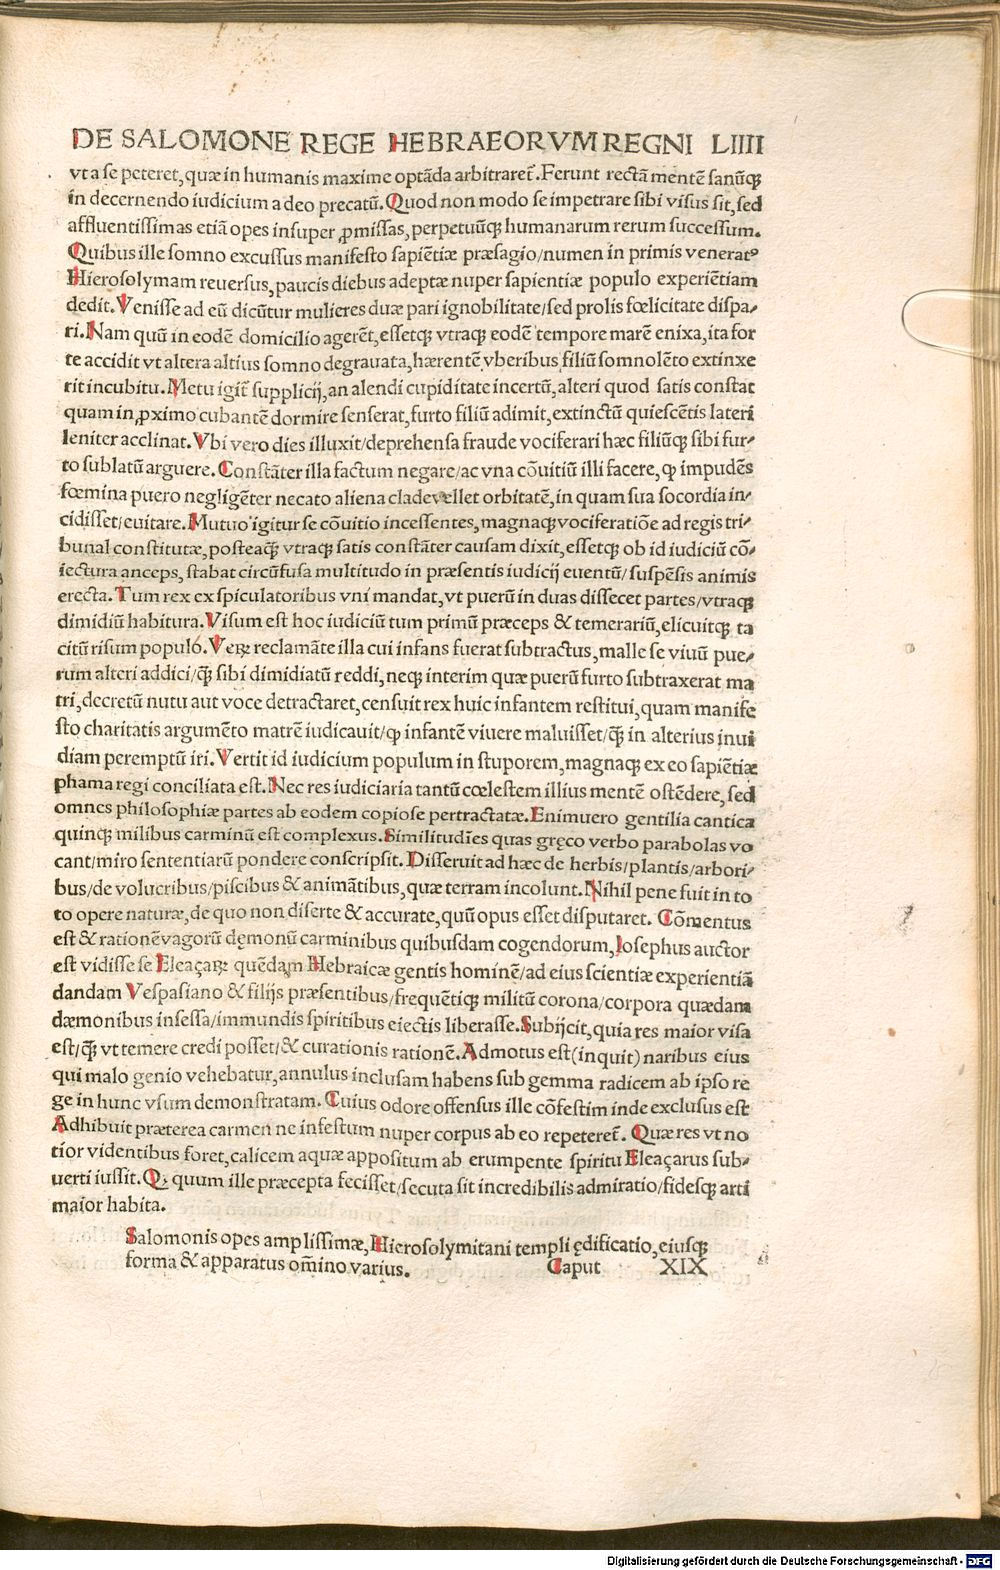 DE SALOMONE REGE HEBRAEORVM REGNI LIIII
vt a se peteret, quæ in humanis maxime optāda arbitraret̃. Ferunt rectā mentē sanūq̃
in decernendo iudicium adeo precatū. Quod non modo se impetrare sibi visus sit, sed
affluentissimas etiā opes insuper ꝓmissas, perpetuūq̃ humanarum rerum successum.
Quibus ille somno excussus manifesto sapiētiæ præsagio/numen in primis veneratꝰ
Hierosolymam reuersus, paucis diebus adeptæ nuper sapientiæ populo experiētiam
dedit. Venisse ad eū dicūtur mulieres duæ pari ignobilitate/sed prolis fœlicitate dispa/
ri. Nam quū in eodē domicilio agerēt, essetq̃ vtraq̃ eodē tempore marē enixa, ita for
te accidit vt altera altius somno degrauata, hærentē vberibus filiū somnolēto extinxe
rit incubitu. Metu igit̃ supplicij, an alendi cupiditate incertū, alteri quod satis constat
quam in ꝓximo cubantē dormire senserat, furto filiū adimit, extinctū quiescētis lateri
leniter acclinat. Vbi vero dies illuxit/deprehensa fraude vociferari hæc filiūq̃ sibi fur/
to sublatū arguere. Constāter illa factum negare/ac vna cōuitiū illi facere, ꝙ impudēs
fœmina puero negligēter necato aliena clade vellet orbitatē, in quam sua socordia in/
cidisset/euitare. Mutuo igitur se cōuitio incessentes, magnaq̃ vociferatiōe ad regis tri/
bunal constitutæ, posteaq̃ vtraq̃ satis constāter causam dixit, essetq̃ ob id iudiciū cō/
iectura anceps, stabat circūfusa multitudo in præsentis iudicij euentū/suspēsis animis
erecta. Tum rex ex spiculatoribus vni mandat, vt puerū in duas dissecet partes/vtraq̃
dimidiū habitura. Visum est hoc iudiciū tum primū præceps & temerariū, elicuitq̃ ta
citū risum populo. Veꝝ reclamāte illa cui infans fuerat subtractus, malle se viuū pue/
rum alteri addici/q̃ sibi dimidiatū reddi, neq̃ interim quæ puerū furto subtraxerat ma
tri, decretū nutu aut voce detractaret, censuit rex huic infantem restitui, quam manife
sto charitatis argumēto matrē iudicauit/ꝙ infantē viuere maluisset/q̃ in alterius inui
diam peremptū iri. Vertit id iudicium populum in stuporem, magnaq̃ ex eo sapiētiæ
phama regi conciliata est. Nec res iudiciaria tantū cœlestem illius mentē ostēdere, sed
omnes philosophiæ partes ab eodem copiose pertractatæ. Enimuero gentilia cantica
quinq̃ milibus carminū est complexus. Similitudīes quas gręco verbo parabolas vo
cant/miro sententiarū pondere conscripsit. Disseruit ad hæc de herbis/plantis/arbori/
bus/de volucribus/piscibus & animātibus, quæ terram incolunt. Nihil pene fuit in to
to opere naturæ, de quo non diserte & accurate, quū opus esset disputaret. Cōmentus
est & rationē vagorū dęmonū carminibus quibusdam cogendorum, Iosephus auctor
est vidisse se Eleaçaꝝ quēdam Hebraicæ gentis hominē/ad eius scientiæ experientiā
dandam Vespasiano & filijs præsentibus/frequētiq̃ militū corona/corpora quædam
dæmonibus insessa/immundis spiritibus eiectis liberasse. Subijcit, quia res maior visa
est/q̃ vt temere credi posset/& curationis rationē. Admotus est (inquit) naribus eius
qui malo genio vehebatur, annulus inclusam habens sub gemma radicem ab ipso re
ge in hunc vsum demonstratam. Cuius odore offensus ille cōfestim inde exclusus est
Adhibuit præterea carmen ne infestum nuper corpus ab eo repeteret̃. Quæ res vt no
tior videntibus foret, calicem aquæ appositum ab erumpente spiritu Eleaçarus sub/
uerti iussit. Q; quum ille præcepta fecisset/secuta sit incredibilis admiratio/fidesq̃ arti
maior habita.
Salomonis opes amplissimæ, Hierosolymitani templi ędificatio, eiusq̃
forma & apparatus om̄ino varius. Caput XIX
Digitalisierung gefördert durch die Deutsche Forschungsgemeinschaft - DFG